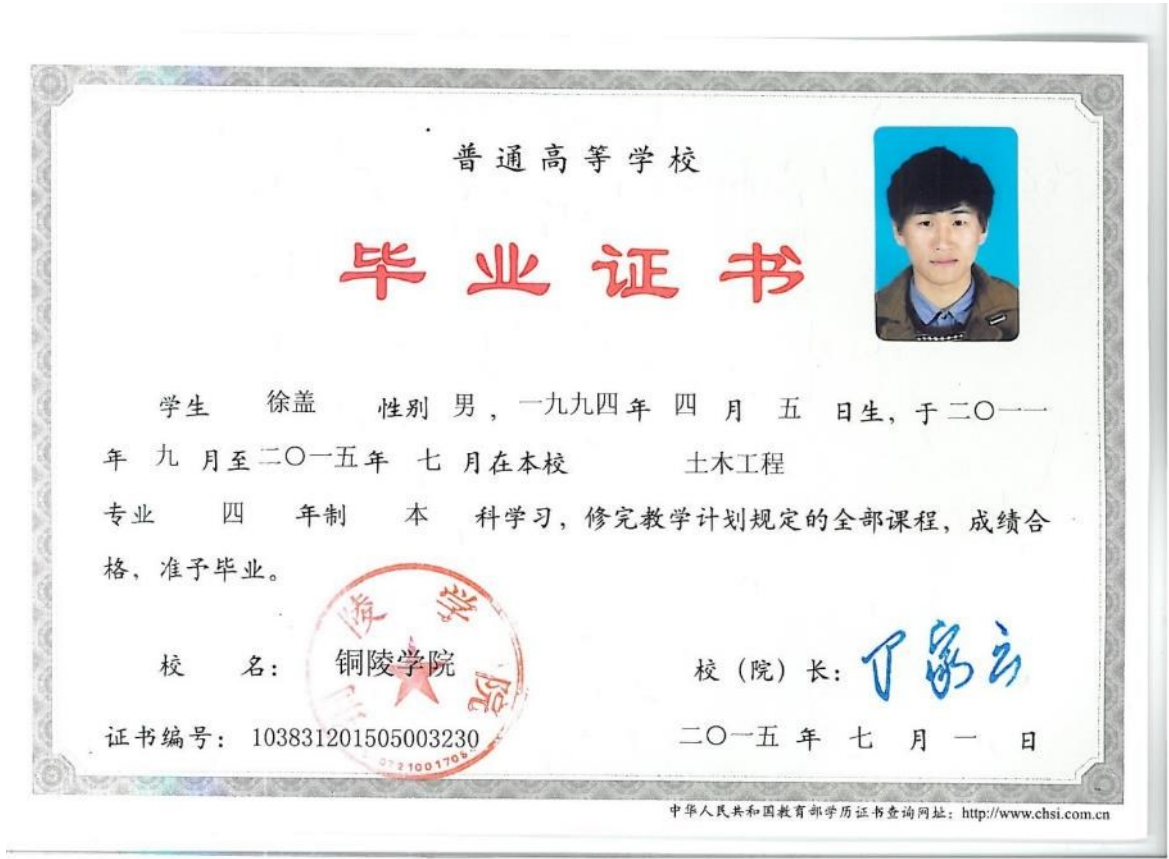 普通高等学校
毕业证书
学生 徐盖 性别 男 ，一九九四年 四 月 五 日生，于二〇一一
年 九 月至二〇一五年 七 月在本校 土木工程
专业 四 年制 本 科学习，修完教学计划规定的全部课程，成绩合
格，准予毕业。
陵学院
校 名： 铜陵学院 校（院）长：丁家云
证书编号： 103831201505003230 二〇一五 年 七 月 一 日
中华人民共和国教育部学历证书查询网址：http://www.chsi.com.cn